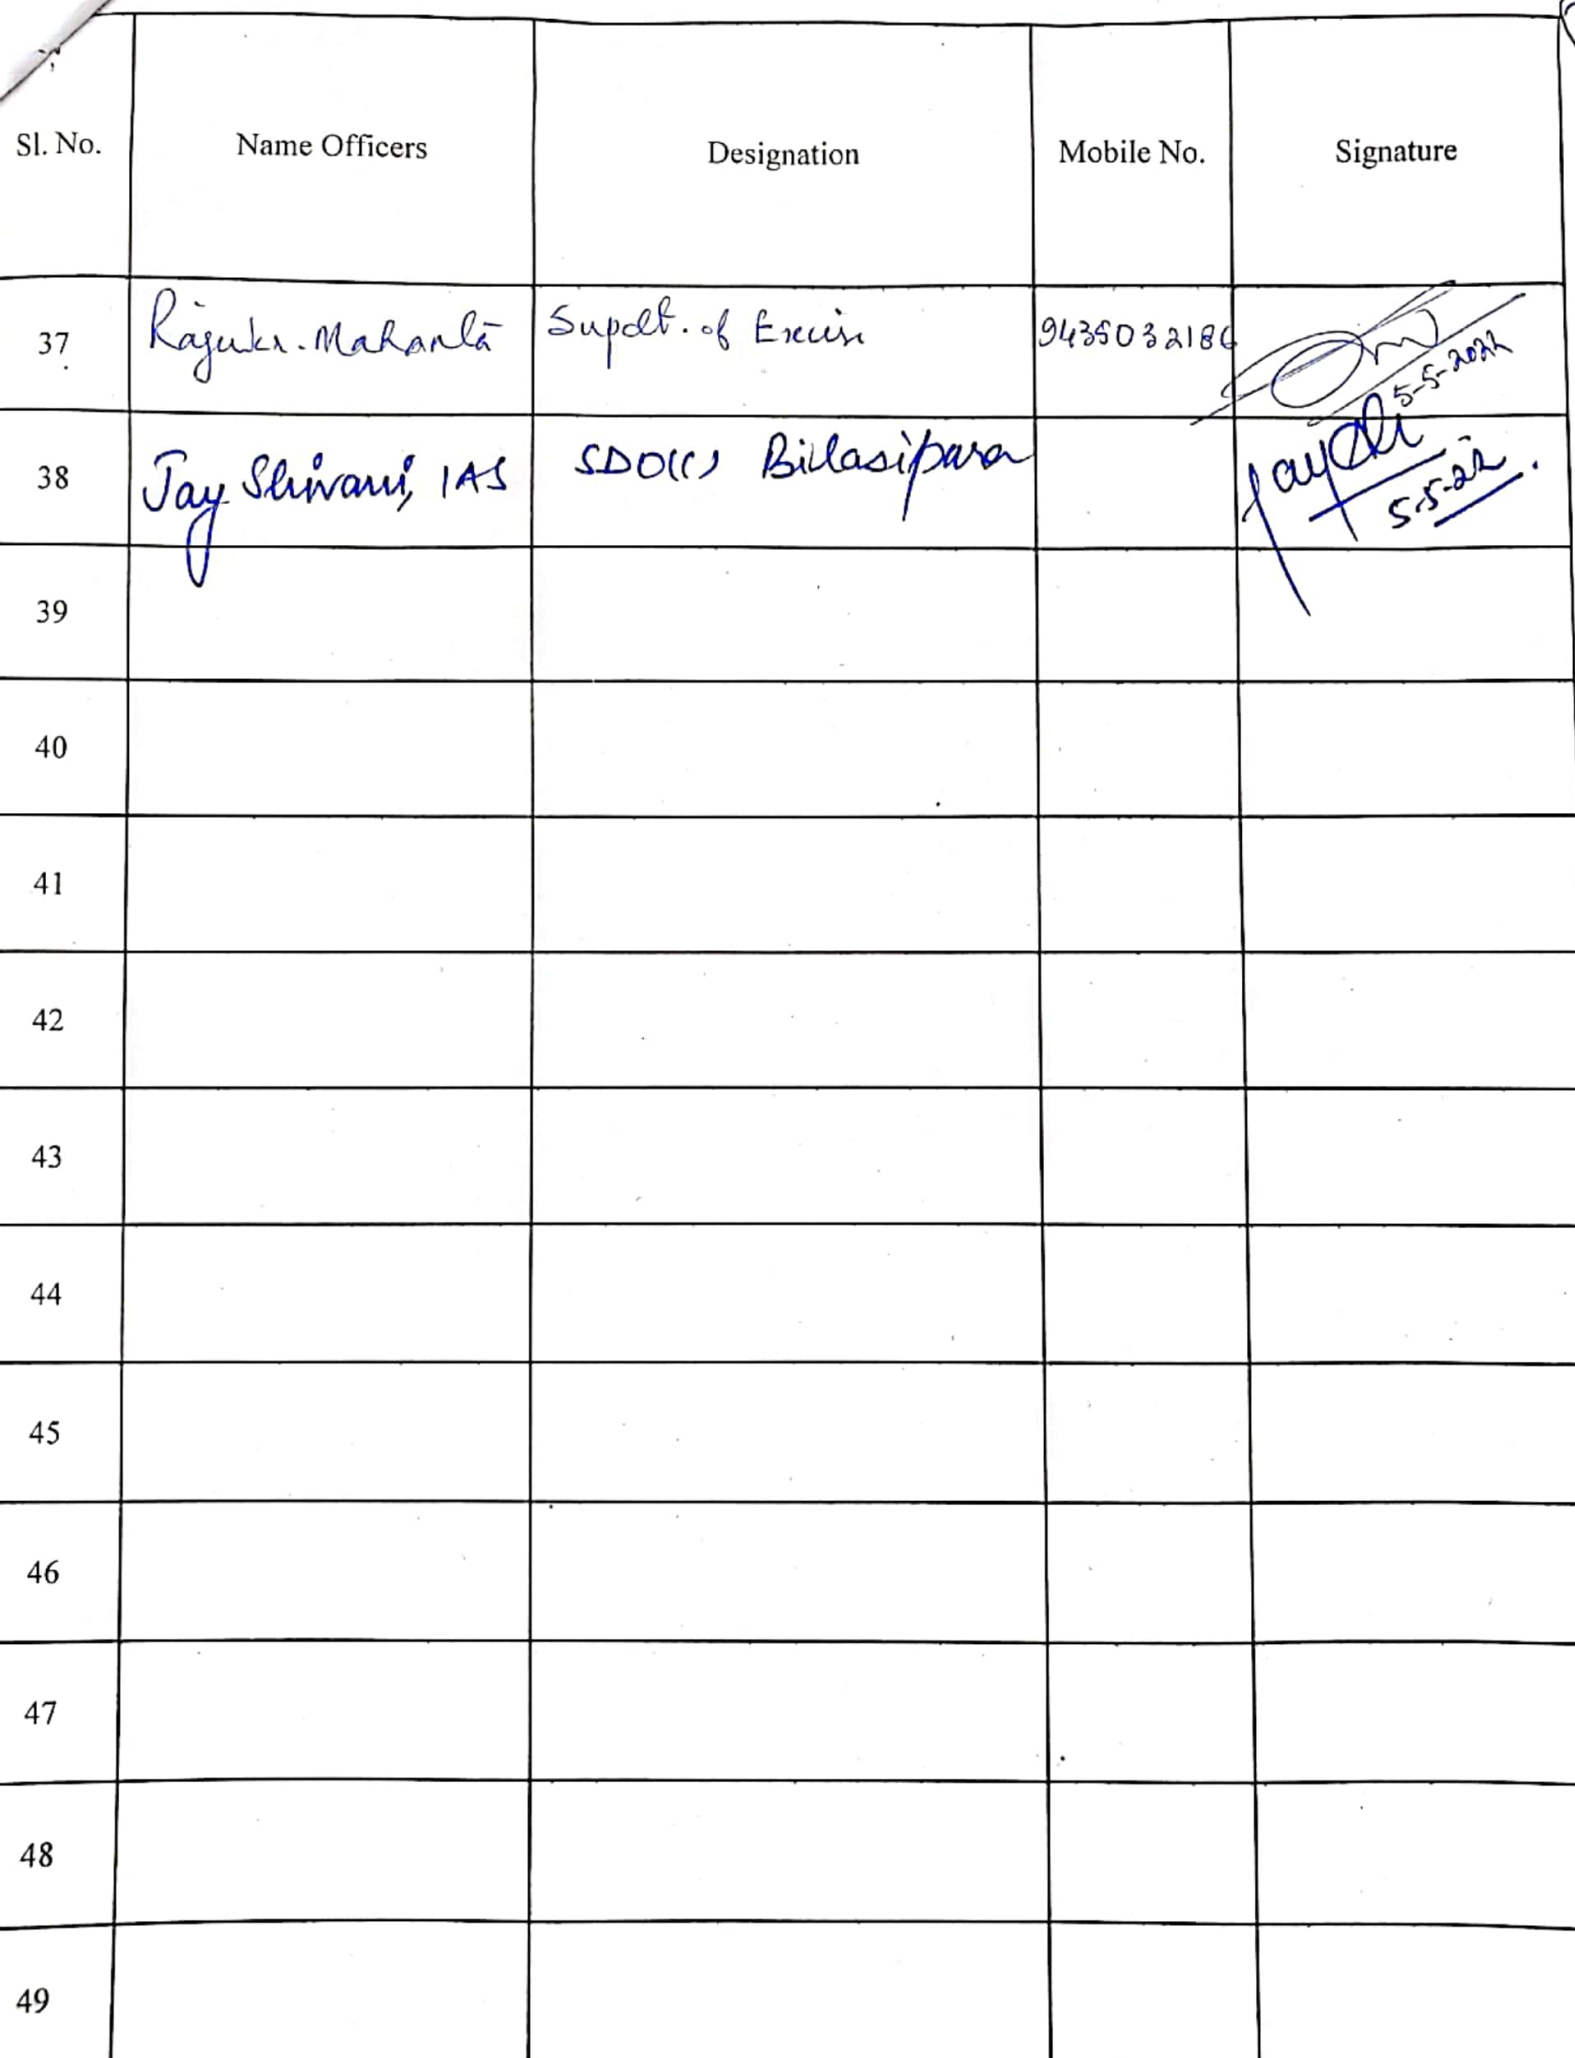 Sl. No. Name Officers Designation Mobile No. Signature
37 Supdt. of Excise 5-5-2022
38 Jay Shivani, IAS SDO(C) Bilasipara 5-5-22
39
40
41
42
43
44
45
46
47
48
49